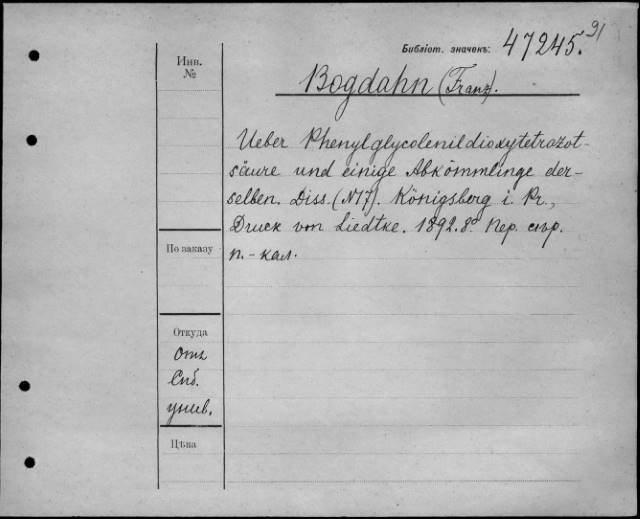 91
Библіот. значекъ: 47245.
Инв.
№
Bogdahn (Franz).
Ueber Phenylglycolenildioxytetrazot-
säure und einige Abkömmlinge der-
selben. Diss. (N17). Königsberg i. Pr.,
Druck von Liedtke. 1892. 8º. Пер. стр.
п.-кал.
По заказу
Откуда
Отъ
Спб.
унив.
Цѣна